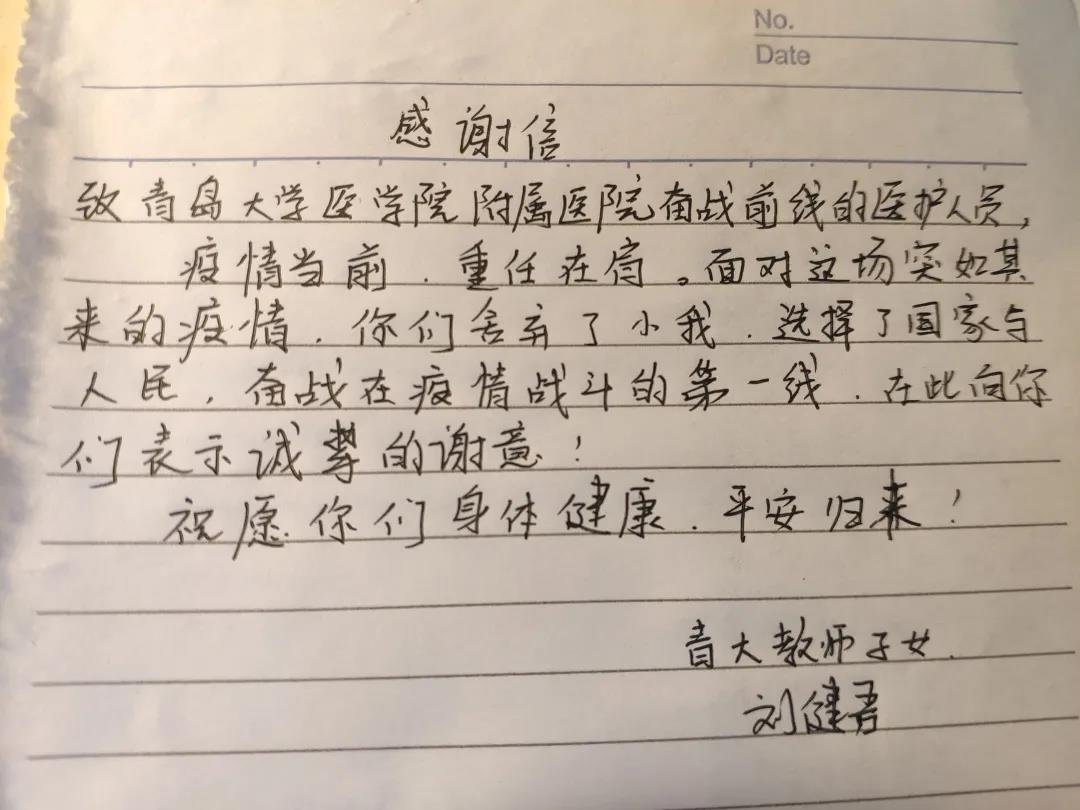 No.
Date
感谢信
致青岛大学医学院附属医院奋战前线的医护人员,
疫情当前,重任在肩。面对这场突如其
来的疫情,你们舍弃了小我,选择了国家与
人民,奋战在疫情战斗的第一线,在此向你
们表示诚挚的谢意!
祝愿你们身体健康,平安归来!
青大教师子女.
刘健吾